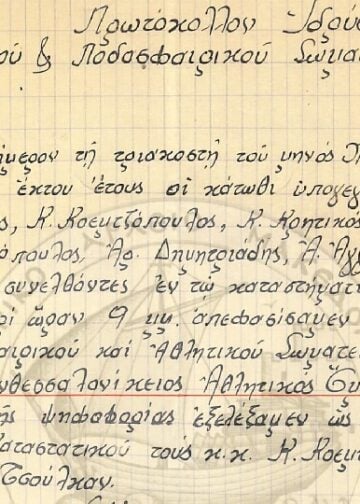 Πρωτόκολλον Ἱδρύσ
οῦ & Ποδοσφαιρικοῦ Σωματ
ήμερον τῇ τριακοστῇ τοῦ μηνός
ἕκτου ἔτους οἱ κάτωθι ὑπογεγ
ς, Κ. Κρεμτζόπουλος, Κ. Κρητικος
όπουλος, Ἀρ. Δημητριάδης, Ἀ. Ἀγγ
συνελθόντες ἐν τῷ καταστήματι
ρί ὥραν 9 μμ. ἀπεφασίσαμεν
αιρικοῦ καί Ἀθλητικοῦ Σωματε
νθεσσαλονίκειος Ἀθλητικός Ὅμ
ῆς ψηφοφορίας ἐξελέξαμεν ὡς
Καταστατικοῦ τούς κ.κ. Κ. Κρεμτ
Τσούλκαν.